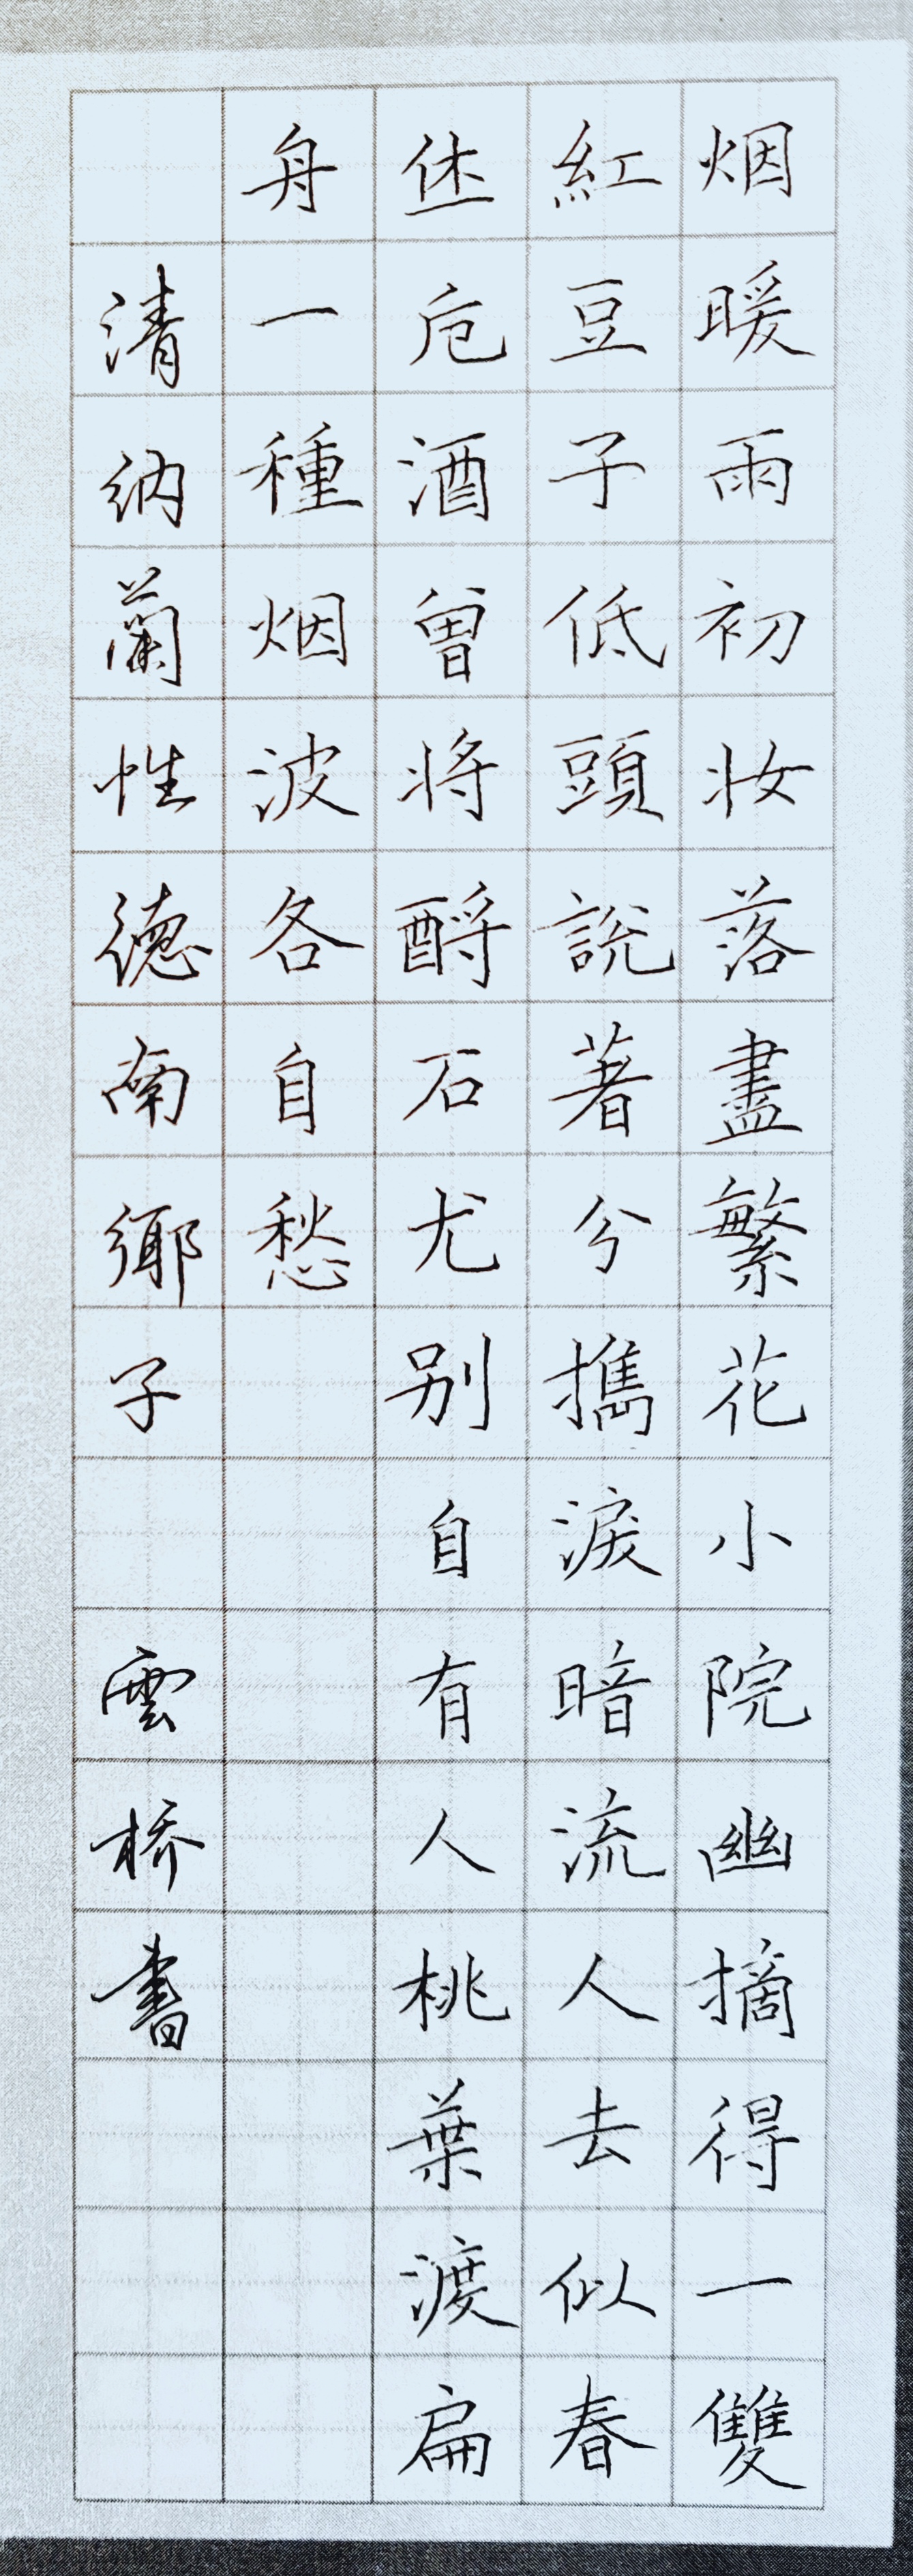 烟暖雨初妆落盡繁花小院幽摘得一雙
紅豆子低頭說著分擕淚暗流人去似春
休卮酒曾将酹石尤别自有人桃葉渡扁
舟一種烟波各自愁
清纳蘭性德南鄉子 雲桥書